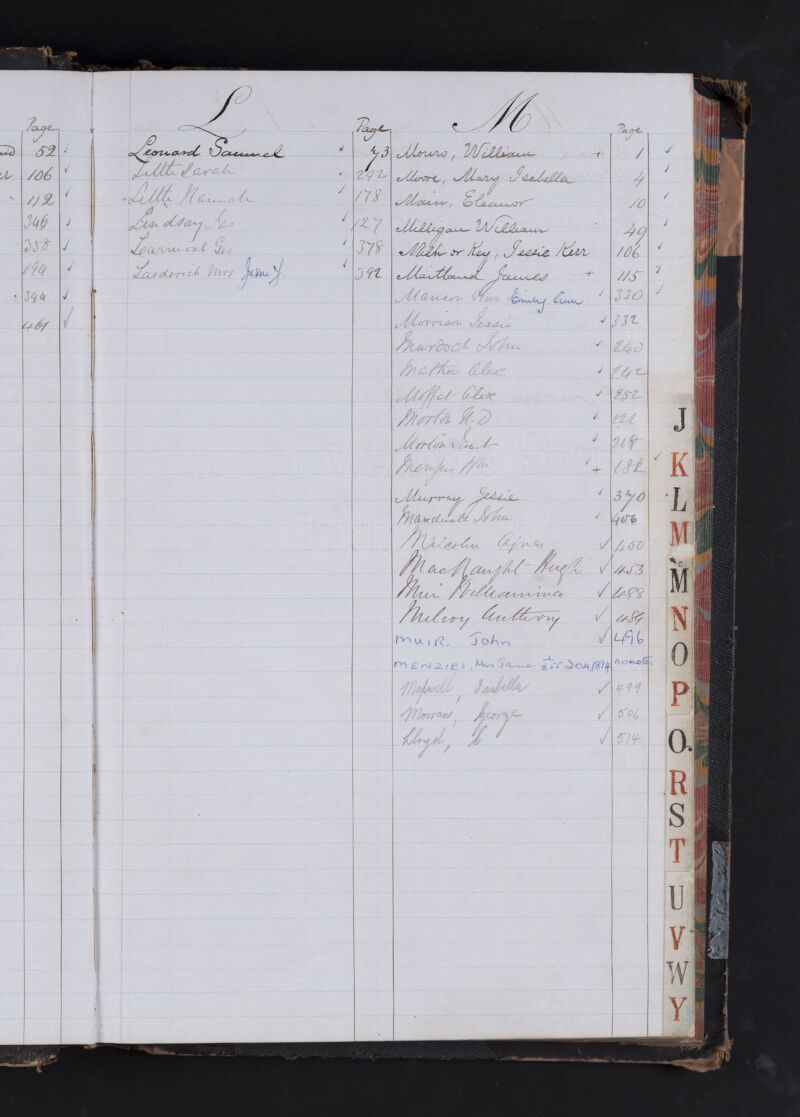 Page
52
106
112
346
358
194
394
461
L
Page
Leonard Samuel 73
Little Sarah 292
Little Hannah 178
Lindsay Jas 127
Learmont Geo 378
Laederich Mrs Jessie Y. 392
M
Page
William + 1
Moore, Mary Isabella 4
Main, Eleanor 10
Milligan William 49
or Key, Jessie Kerr 106
Maitland James + 115
Manson Mrs Emily Ann 330
Morrison Jessie 332
Murdoch John 240
Mather Alex 242
Moffat Alex 252
Morton H.D
Morton Saml 218
Menzies Wm +
Murray Jessie 370
John 406
Malcolm Agnes 450
MacNaught Hugh 453
Muir Williamina 488
Milroy Anthony 489
MUIR. John 496
MENZIES, Mrs Jane
Maxwell, Isabella 499
George 506
Lloyd, 514
J
K
L
M
M
N
O
P
Q
R
S
T
U
V
W
Y